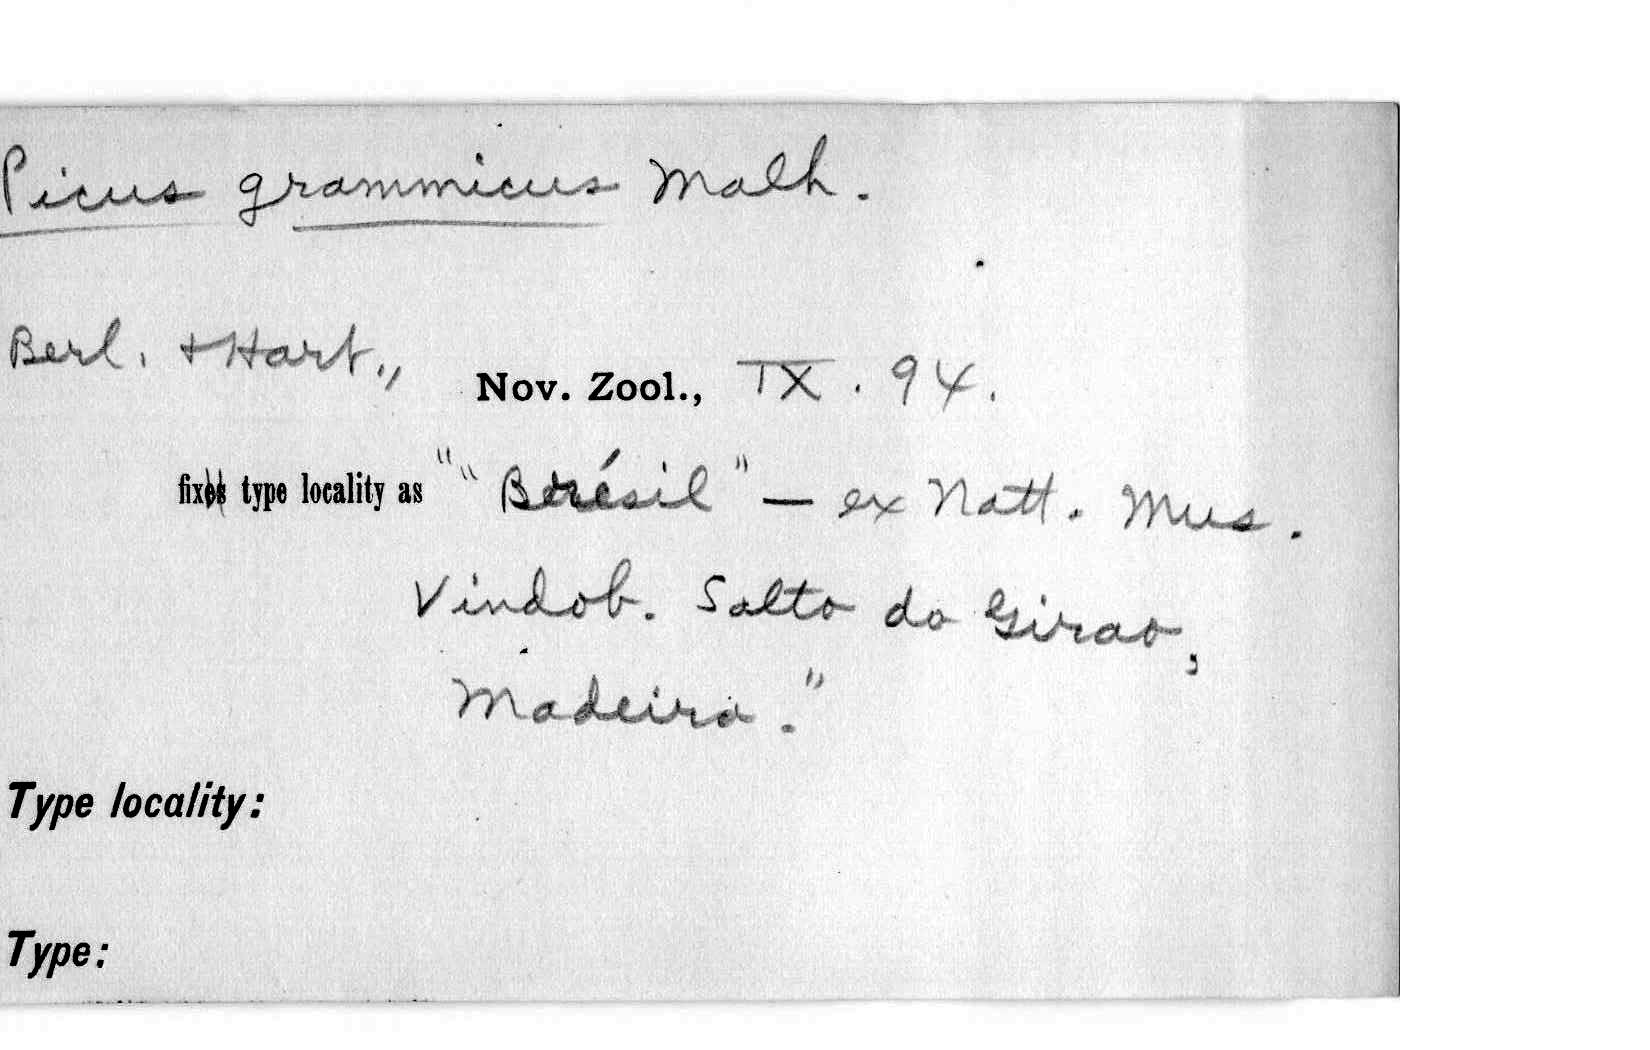 Picus grammicus Malh.
Berl. + Hart., Nov. Zool., IX. 94.
fix type locality as "“Berésil” — ex Natt. Mus.
Vindob. Salto do Girao,
Madeira."
Type locality:
Type: